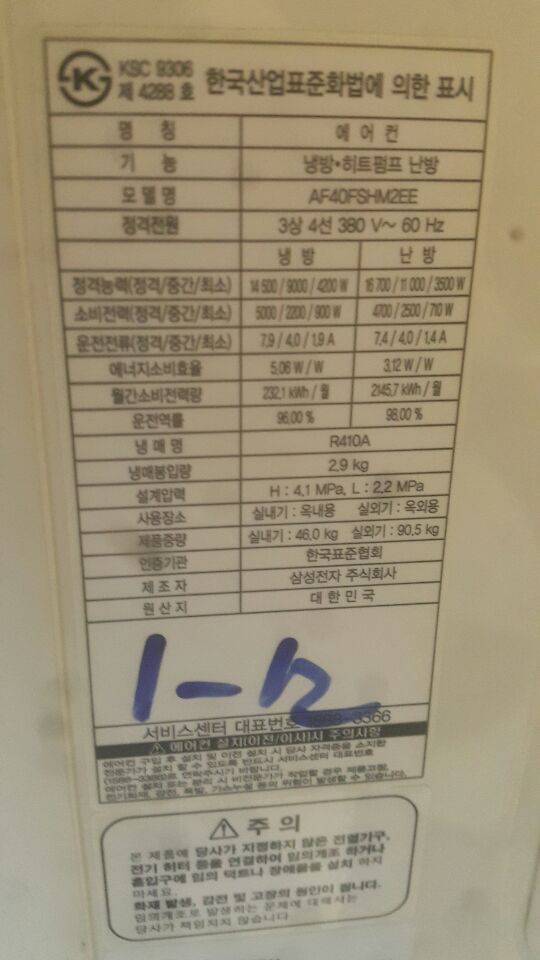 KSC 9306
제 4288 호 한국산업표준화법에 의한 표시
명 칭 에 어 컨
기 능 냉방•히트펌프 난방
모 델 명 AF40FSHM2EE
정격전원 3상 4선 380 V～ 60 Hz
냉 방 난 방
정격능력(정격/중간/최소) 14 500 / 9000 / 4200 W 16 700 / 11 000 / 3500 W
소비전력(정격/중간/최소) 5000 / 2200 / 900 W 4700 / 2500 / 710 W
운전전류(정격/중간/최소) 7.9 / 4.0 / 1.9 A 7.4 / 4.0 / 1.4 A
에너지소비효율 5.06 W / W 3.12 W / W
월간소비전력량 232.1 kWh / 월 2145.7 kWh / 월
운전역률 96.00 % 98.00 %
냉 매 명 R410A
냉매봉입량 2.9 kg
설계압력 H : 4.1 MPa, L : 2.2 MPa
사용장소 실내기 : 옥내용 실외기 : 옥외용
제품중량 실내기 : 46.0 kg 실외기 : 90.5 kg
인증기관 한국표준협회
제 조 자 삼성전자 주식회사
원 산 지 대 한 민 국
서비스센터 대표번호
⚠ 에어컨 설치(이전/이사)시 주의사항
에어컨 구입 후 설치 및 이전 설치 시 당사 자격증을 소지한
전문가가 설치 할 수 있도록 반드시 서비스센터 대표번호
연락주시기 바랍니다.
에어컨 설치 또는 분리 시 비전문가가 작업할 경우 제품고장,
전기화재, 감전, 폭발, 가스누설 등의 위험이 발생할 수 있습니다.
⚠ 주 의
본 제품에 당사가 지정하지 않은 전열기구,
전기 히터 등을 연결하여 임의개조 하거나
흡입구에 임의 덕트나 장애물을 설치 하지
마세요.
화재 발생, 감전 및 고장의 원인이 됩니다.
임의개조로 발생하는 문제에 대해서는
당사가 책임지지 않습니다.